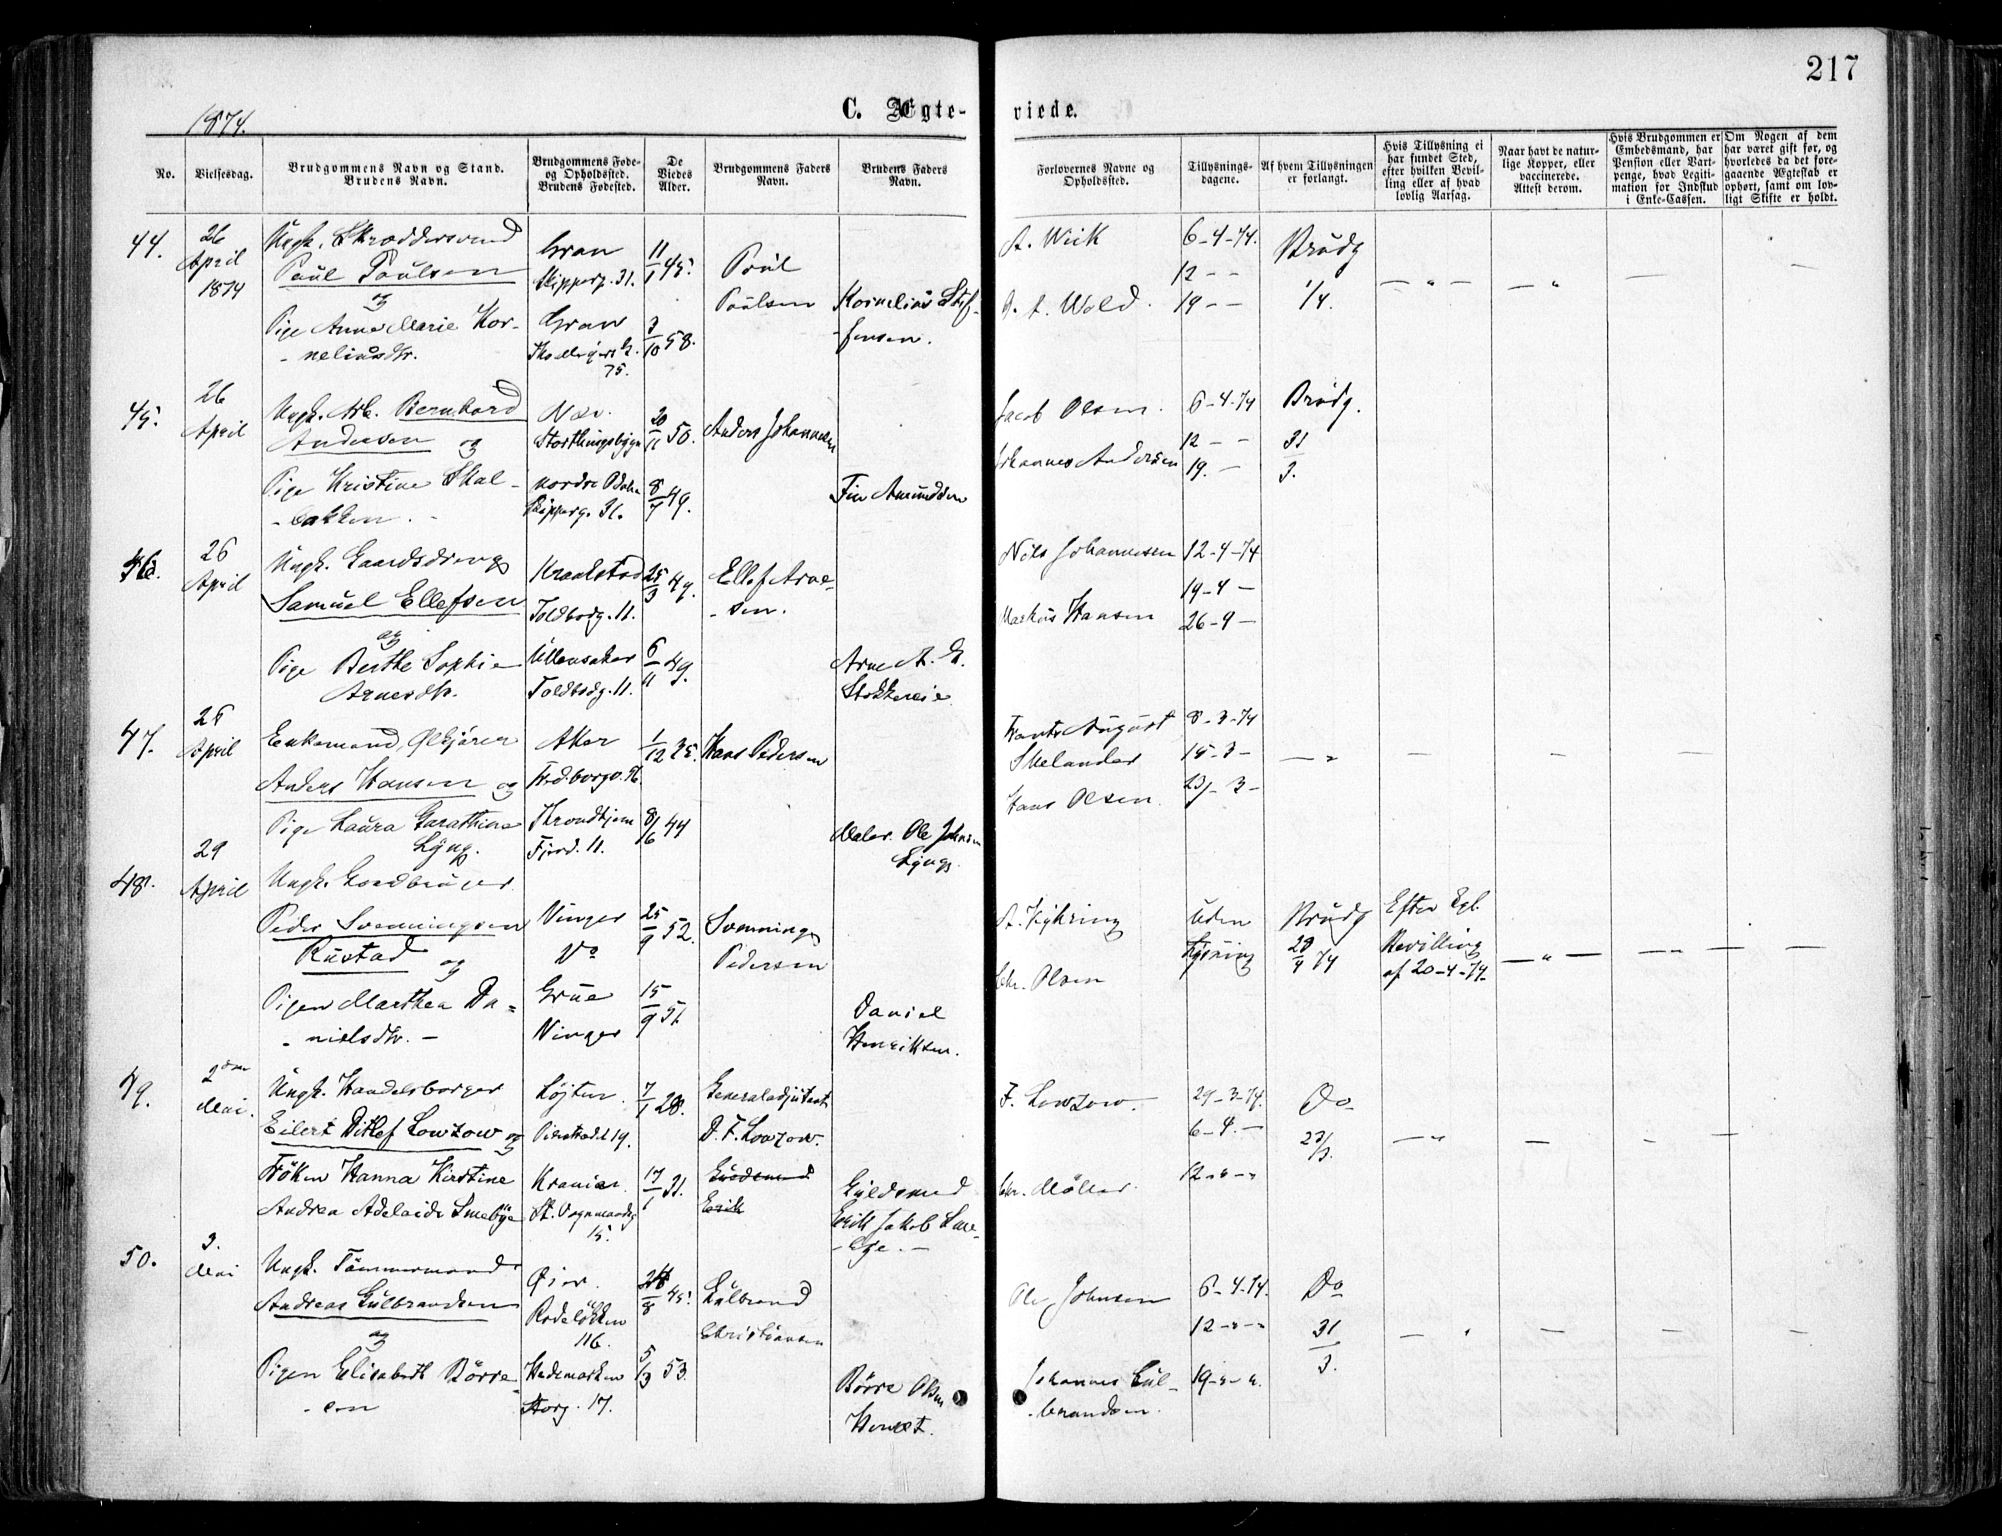 217
1874.
C. Ægte- viede.
No.
Vielsesdag.
Brudgommens Navn og Stand.
Brudens Navn.
Brudgommens Føde-
og Opholdssted.
Brudens Fødested.
De
Viedes
Alder.
Brudgommens Faders
Navn.
Brudens Faders
Navn.
Forlovernes Navne og
Opholdssted.
Tillysnings-
dagene.
Af hvem Tillysningen
er forlangt.
Hvis Tillysning ei
har fundet Sted,
efter hvilken Bevil-
ling eller af hvad
lovlig Aarsag.
Naar havt de natur-
lige Kopper, eller
vaccinerede.
Attest derom.
Hvis Brudgommen er
Embedsmand, har
Pension eller Vart-
penge, hvad Legiti-
mation for Indskud
i Enke-Cassen.
Om Nogen af dem
har været gift før, og
hvorledes da det fore-
gaaende Ægteskab er
ophørt, samt om lov-
ligt Skifte er holdt.
44.
26
April
1874
Ungk. Skræddersvend
Poul Poulsen
og
Pige Anne Marie Kor-
- neliusdtr.
Gran
Skipperg. 31.
Gran
75.
11/1 45.
7/10 58.
Poul
Poulsen
Kornelius Stef-
-fensen.
A. Wiik
A. Wold.
6-4-74.
12 - -
19 - -
Brudg
1/4.
45.
26
April
Ungk. Arb. Bernhard
Andersen og
Pige Kristine Skal-
-bakken. -
Næs.
Storthingsbygn
nordre Odalen
Skipperg. 31.
20/11 50.
8/7 49.
Anders Johannesen
Fin Amundsen
Jacob Olsen.
Johannes Andersen
6-4-74
12 - -
19. -
Brudg.
31/3.
46.
26
April
Ungk. Gaardsdreng
Samuel Ellefsen
og
Pige Berthe Sophie
Arnesdtr.
Kraakstad
Toldbodg. 11.
Ullensaker
Toldbodg. 11.
25/3 49.
6/11 49.
Ellef Arne-
-sen.
Arne A. E.
Stokkereie
Nils Johannesen
Markus Hansen
12-4-74
19-4 -
26-9 -
47.
26
April
Enkemand, Ølkjører
Anders Hansen og
Pige Laura Garathine
Lyng.
Aker
Throndhjem
Fjerd. 11.
1/12 35.
8/6 44
Hans Pedersen
Maler Ole Johnsen
Lyng.
Frants August
Skelander
Hans Olsen.
8-3-74
15-3-
23-3-
48.
29
April
Ungk. Gaardbruger
Peder Svenningsen
Rustad og
Pigen Marthea Da-
-nielsdtr. -
Vinger
Do
Grue
Vinger
25/9 52.
15/9 51.
Svenning
Pedersen
Daniel
Henriksen.
Chr. Olsen
Uden
Lysning
Brudg
28/4 74
Efter Kgl.
Bevilling
af 20-4-74.
49.
2den
Mai.
Ungk. Handelsborger
Eilert Ditlef Lowzow og
Frøken Hanna Kirstine
Andrea Adelaide Smebye
Løjten.
Pilestrædet 19.
Krania.
St. Vognmandsg
15.
7/1 28.
17/1 31.
Generaladjutant
D. F. Lowzow.
Guldsmed
Erik
Guldsmed
Erik Jakob Sme-
-bye. -
F. Lowzow.
Chr. Möller.
29-3-74.
6-4. -
12-"-"
Do
23/3.
50.
3.
Mai
Ungk. Tømmermand
Andreas Gulbrandsen
og
Pigen Elisabeth Börre-
-sen
Øier.
Rodeløkken
116.
Hedemarken
Storg. 17.
28/8 45.
5/3 53.
Gulbrand
Christiansen
Börre Olsen
Hemet.
Ole Johnsen
Johannes Gul-
-brandsen.
6-4-74.
12-"-"
19-"-".
Do
31/3.